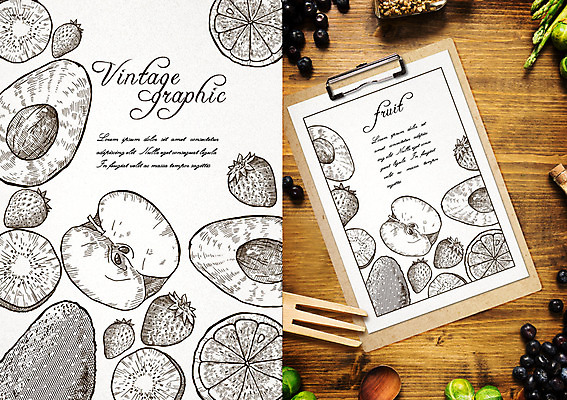 Vintage
graphic
Lorem ipsum dolor sit amet consectetur
adipiscing elit. Nulla eget consequat ligula.
In feugiat velit ac massa tempor sagittis.
fruit
Lorem ipsum dolor sit
amet, consectetur
adipiscing elit. Nulla eget
consequat ligula. In feugiat
velit ac massa tempor
sagittis.